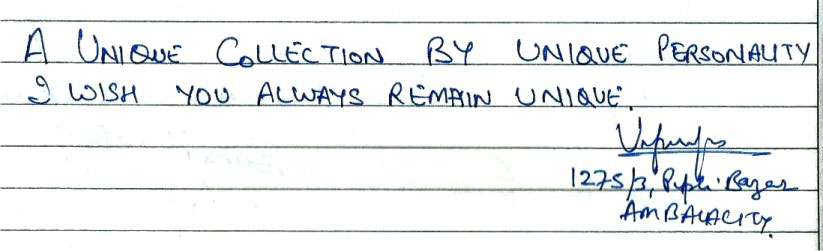 A UNIQUE COLLECTION BY UNIQUE PERSONALITY
I WISH YOU ALWAYS REMAIN UNIQUE.
1275/3, Pipli Bazar
AMBALACITY.